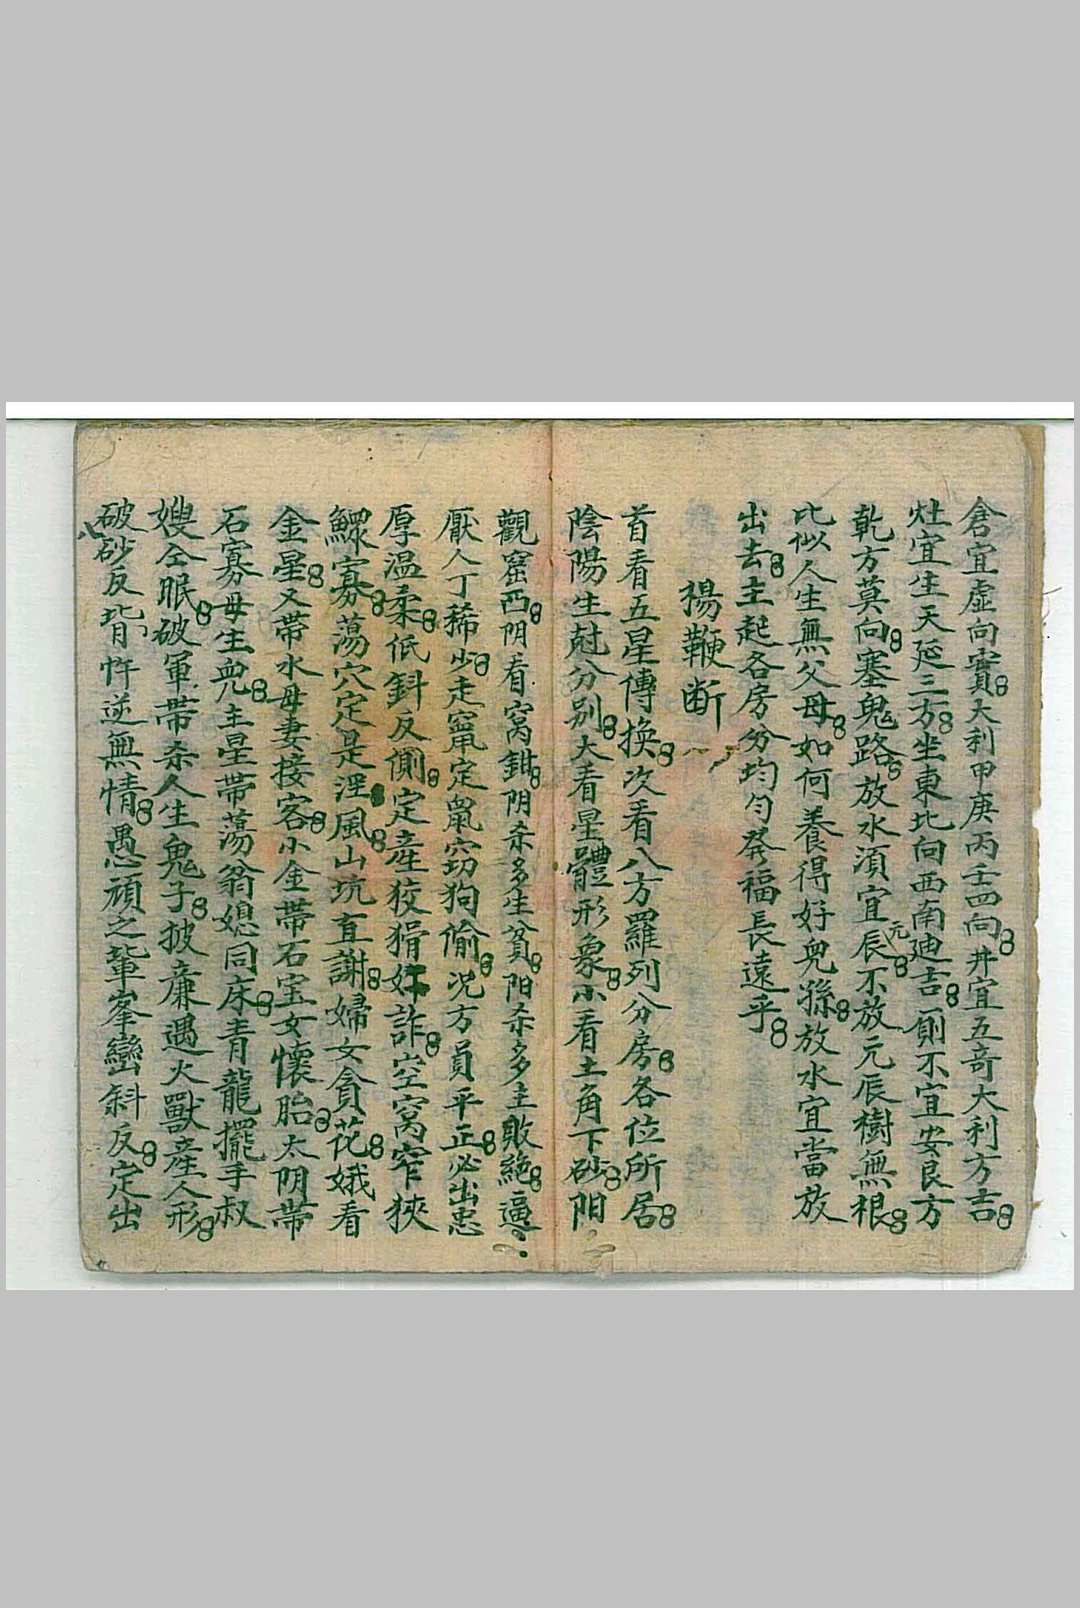 倉宜虛向實大利甲庚丙壬四向井宜五奇大利方吉
灶宜生天延三方坐東北向西南迪吉厠不宜安艮方
乾方莫向塞鬼路放水須宜元辰不放元辰樹無根
比似人生無父母如何養得好兒孫放水宜當放
出去主起各房分均勻癸福長遠乎
揚鞭断
首看五星傳換次看八方羅列分房各位所居
陰陽生尅分別大看星體形象小看土角下砂阳
觀窟西阴看窩鉗阴杀多生貧阳杀多主敗絶逼
厭人丁稀少走竄定鼠窃狗偷况方員平正必出忠
厚温柔低斜反側定産狡猾奸詐空窩窄狹
鰥寡蕩穴定是淫風山坑直謝婦女貪花娥看
金星又帶水母妻接客小金帶石室女懷胎太阴帶
石寡母生兒主星帶蕩翁媳同床青龍擺手叔
嫂仝眠破軍帶杀人生鬼子披亷遇火獸産人形
破砂反背忤逆無情愚頑之輩峯巒斜反定出